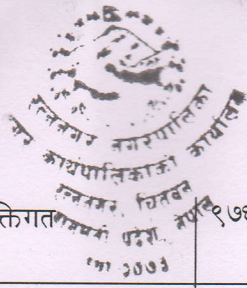 रत्ननगर नगरपालिका
नगर कार्यपालिकाको कार्यालय
रत्ननगर, चितवन
प्रदेश, नेपाल
क्तिगत
९७